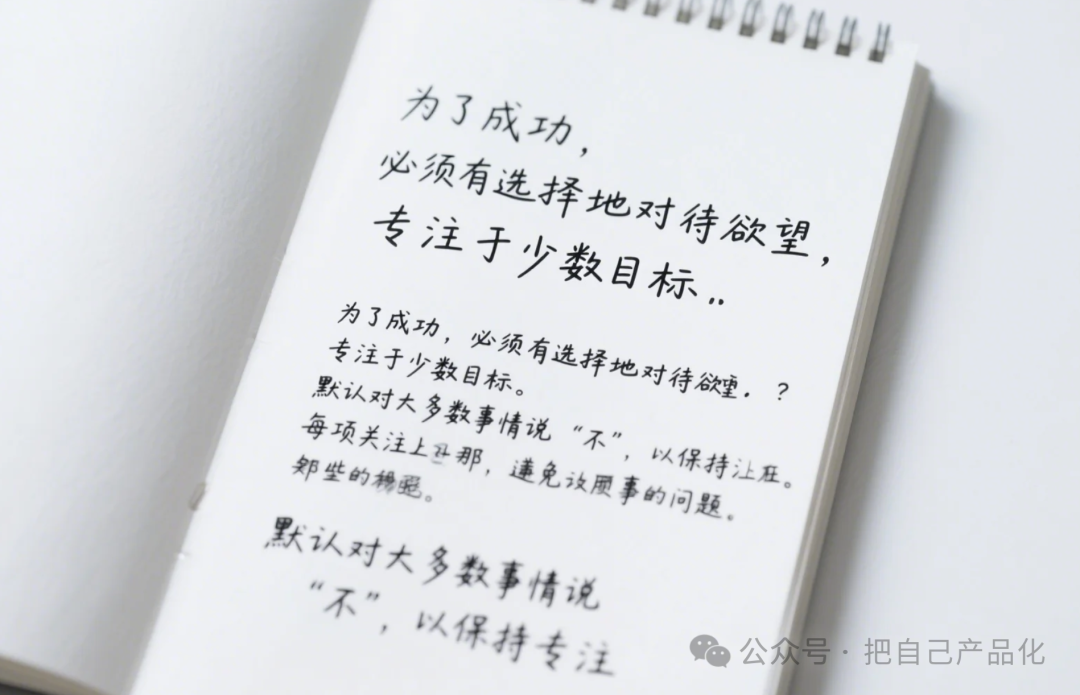 为了成功，
必须有选择地对待欲望，
专注于少数目标..
为了成功，必须有选择地对待欲望. ？
专注于少数目标。
默认对大多数事情说“不”，以保持
每项关注上 那， 免 事的问题。
那些的 。
默认对大多数事情说
“不”，以保持专注
公众号·把自己产品化